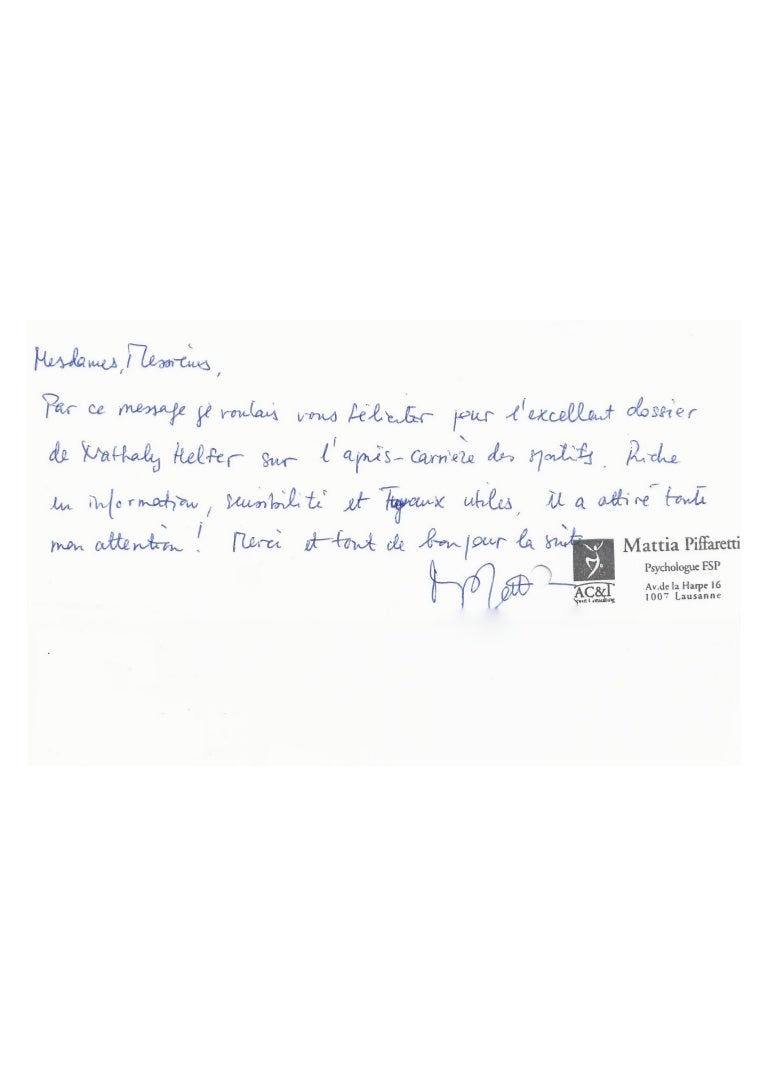 Mesdames, Messieurs,
Par ce message je voulais vous féliciter pour l'excellent dossier
de Nathaly Helfer sur l'après-carrière des sportifs. Riche
en information, sensibilité et Tuyaux utiles, il a attiré toute
mon attention ! Merci et tout de bon pour la suite
Mattia Piffaretti
Psychologue FSP
AC&T
Sport Consulting
Av.de la Harpe 16
1007 Lausanne